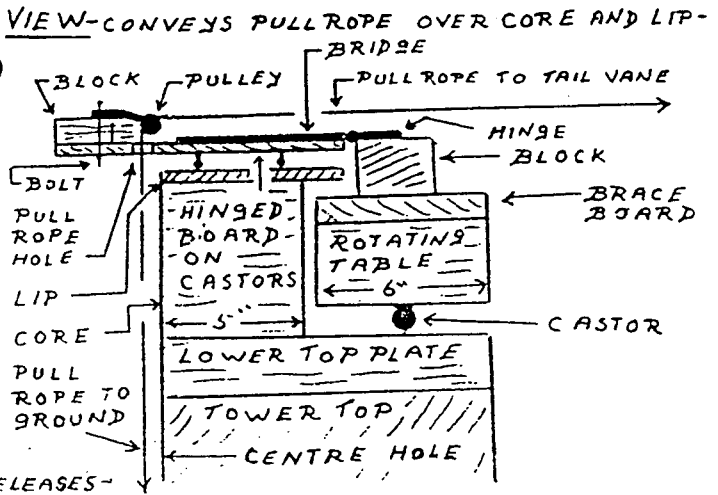 VIEW-CONVEYS PULL ROPE OVER CORE AND LIP-
BRIDGE
BLOCK
PULLEY
PULL ROPE TO TAIL VANE
HINGE
BLOCK
BOLT
PULL
ROPE
HOLE
LIP
CORE
PULL
ROPE TO
GROUND
HINGED
BOARD
ON
CASTORS
5"
BRACE
BOARD
ROTATING
TABLE
6"
CASTOR
LOWER TOP PLATE
TOWER TOP
CENTRE HOLE
ELEASES-